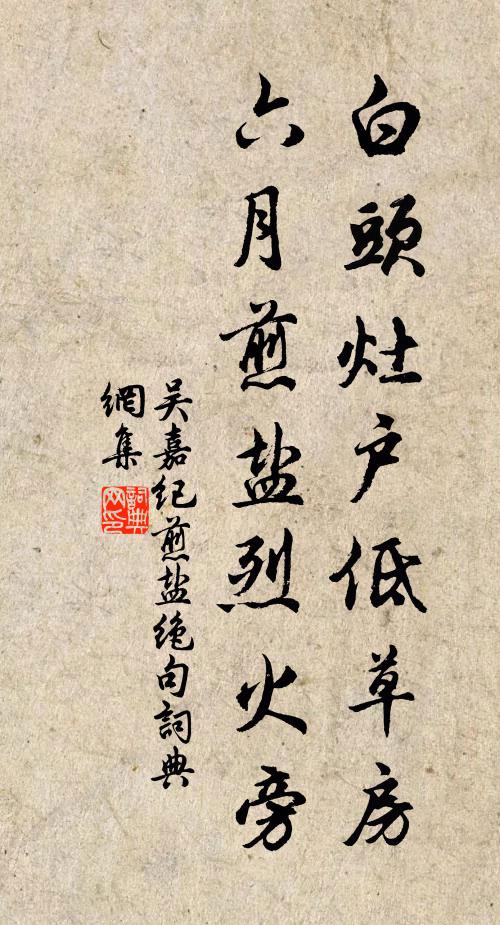 白頭灶户低草房
六月煎盐烈火旁
吴嘉纪煎盐绝句詞典
網集
詞典
网印